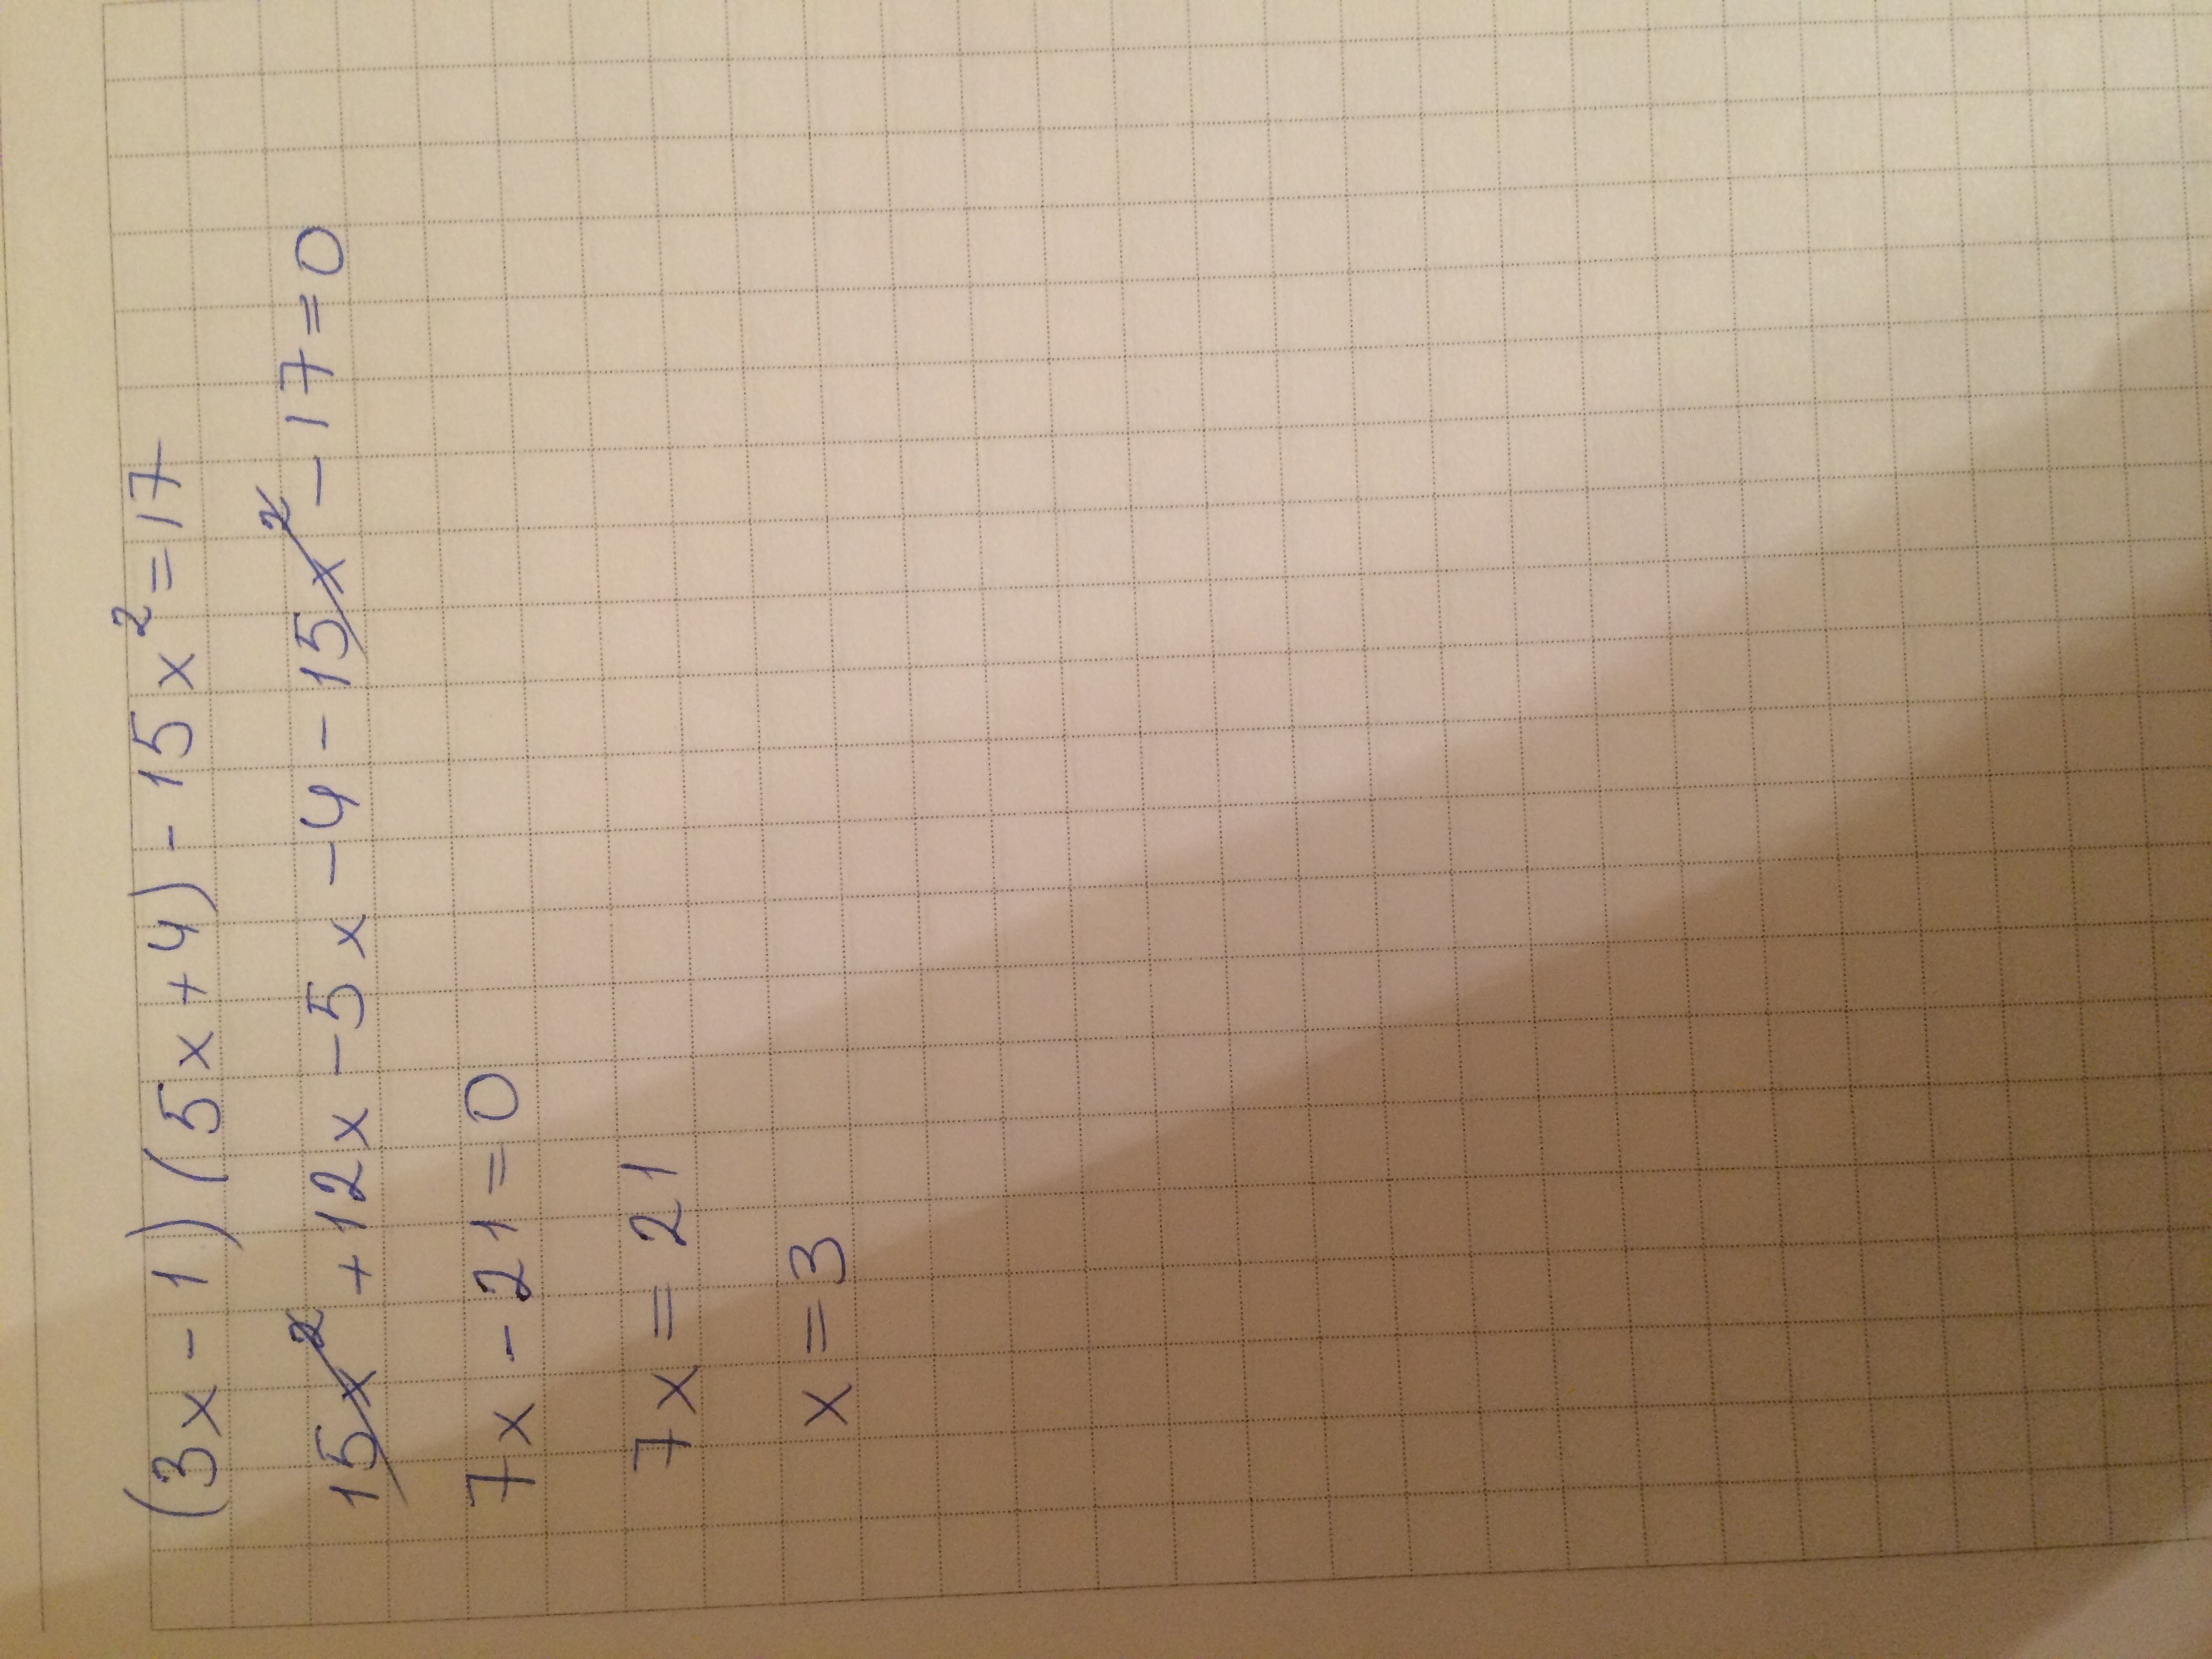 (3x - 1)(5x + 4) - 15x² = 17
15x² + 12x - 5x - 4 - 15x² - 17 = 0
7x - 21 = 0
7x = 21
x = 3